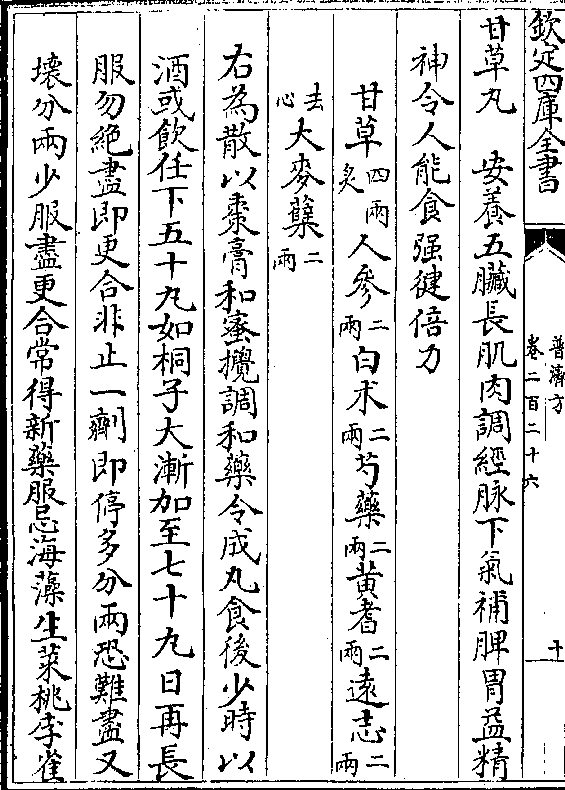 欽定四庫全書
普濟方
卷二百二十六
十
甘草丸　安養五臟長肌肉調經脉下氣補脾胃益精
神令人能食强健倍力
甘草四兩炙人參二兩白朮二兩芍藥二兩黃耆二兩遠志二兩
去心大麥蘖二兩
右為散以棗膏和蜜攪調和藥令成丸食後少時以
酒或飲任下五十丸如桐子大漸加至七十丸日再長
服勿絶盡即更合非止一劑即停多分兩恐難盡又
壞分兩少服盡更合常得新藥服忌海藻生菜桃李雀